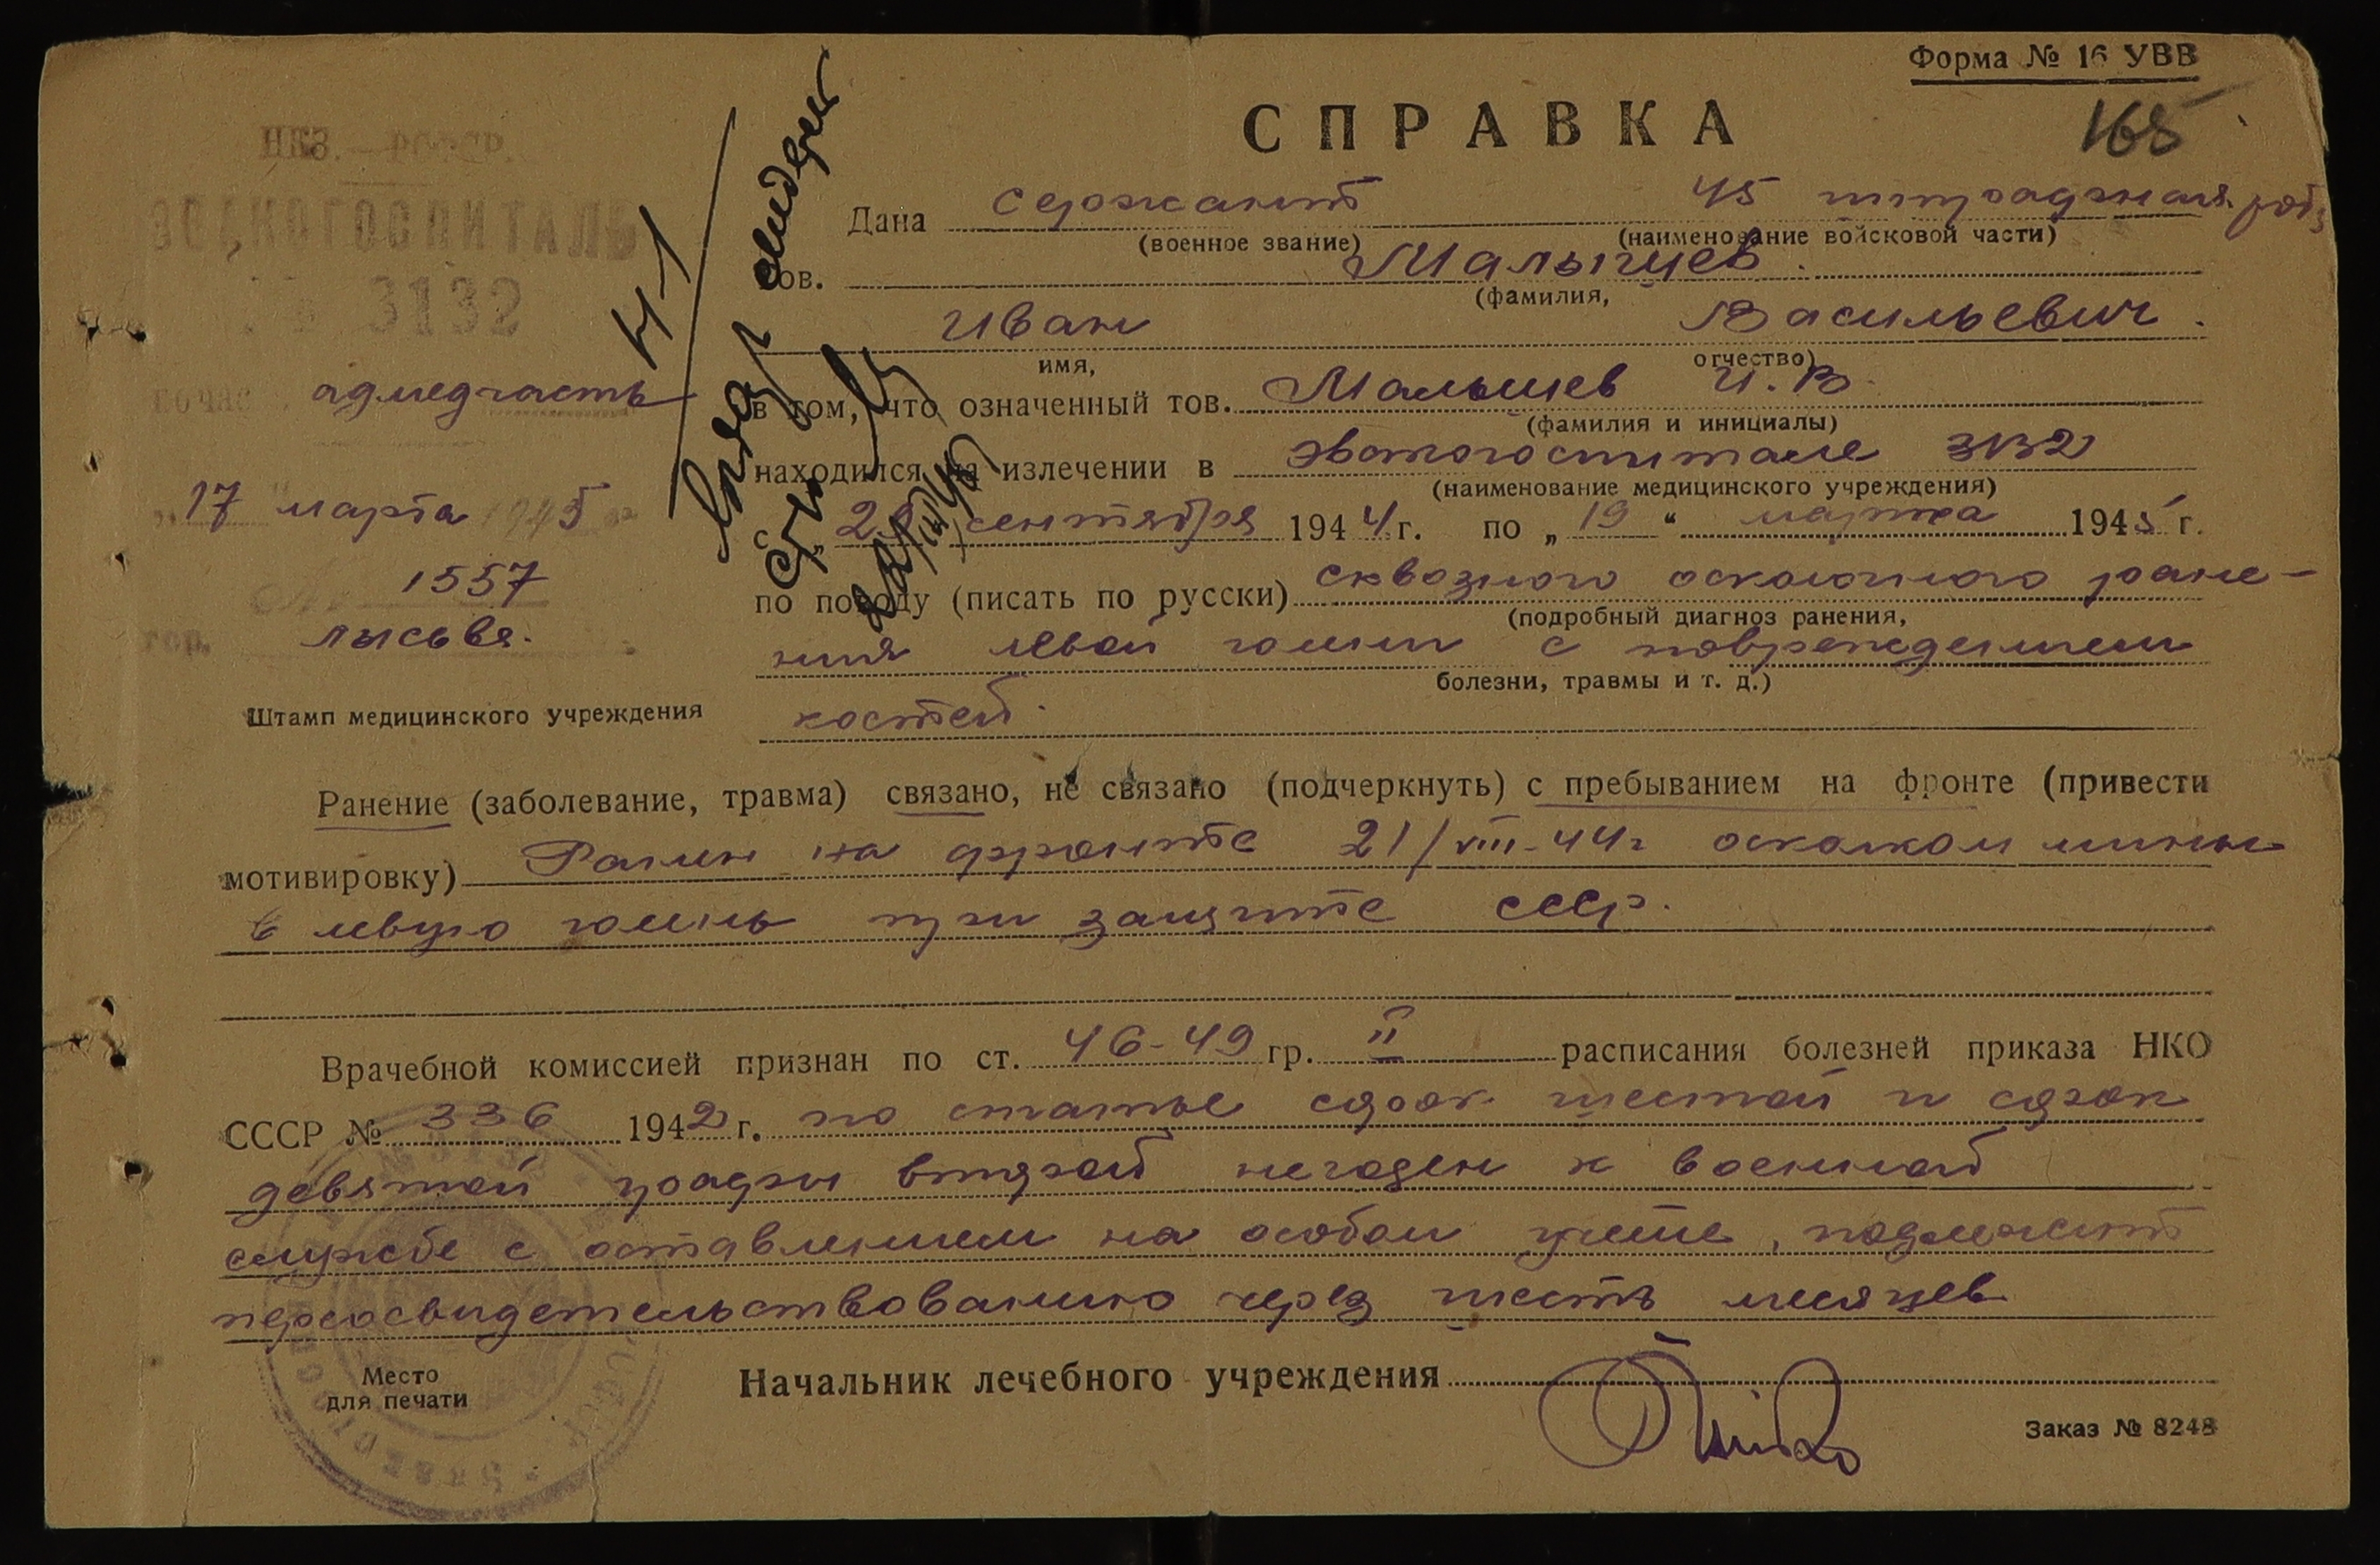 Форма № 16 УВВ
168
СПРАВКА
НКЗ. — РСФСР.
ЭВАКОГОСПИТАЛЬ
3132
адмедчасть
17 марта 1945 г.
№ 1557
гор. Лысьва.
Штамп медицинского учреждения
Н-1
Дана сержант 45 штрафная
(военное звание) (наименование войсковой части)
тов. Малышев.
(фамилия,
Иван Васильевич.
имя, отчество)
в том, что означенный тов. Малышев И. В.
(фамилия и инициалы)
находился на излечении в эвакогоспитале 3132
(наименование медицинского учреждения)
с „ сентября 1944 г. по „ 19 “ марта 1945 г.
по поводу (писать по русски) сквозного осколочного ране-
(подробный диагноз ранения,
ния левой голени с повреждением
болезни, травмы и т. д.)
костей.
Ранение (заболевание, травма) связано, не связано (подчеркнуть) с пребыванием на фронте (привести
мотивировку) Ранен на фронте 21/VIII-44г осколком мины
в левую голень при защите СССР.
Врачебной комиссией признан по ст. 46-49 гр. II расписания болезней приказа НКО
СССР № 336 1942 г. по статье сорок шестой и сорок
девятой графы второй негоден к военной
службе с оставлением на особом учете, подлежит
переосвидетельствованию через шесть месяцев
Место
для печати
Начальник лечебного учреждения
Заказ № 8248